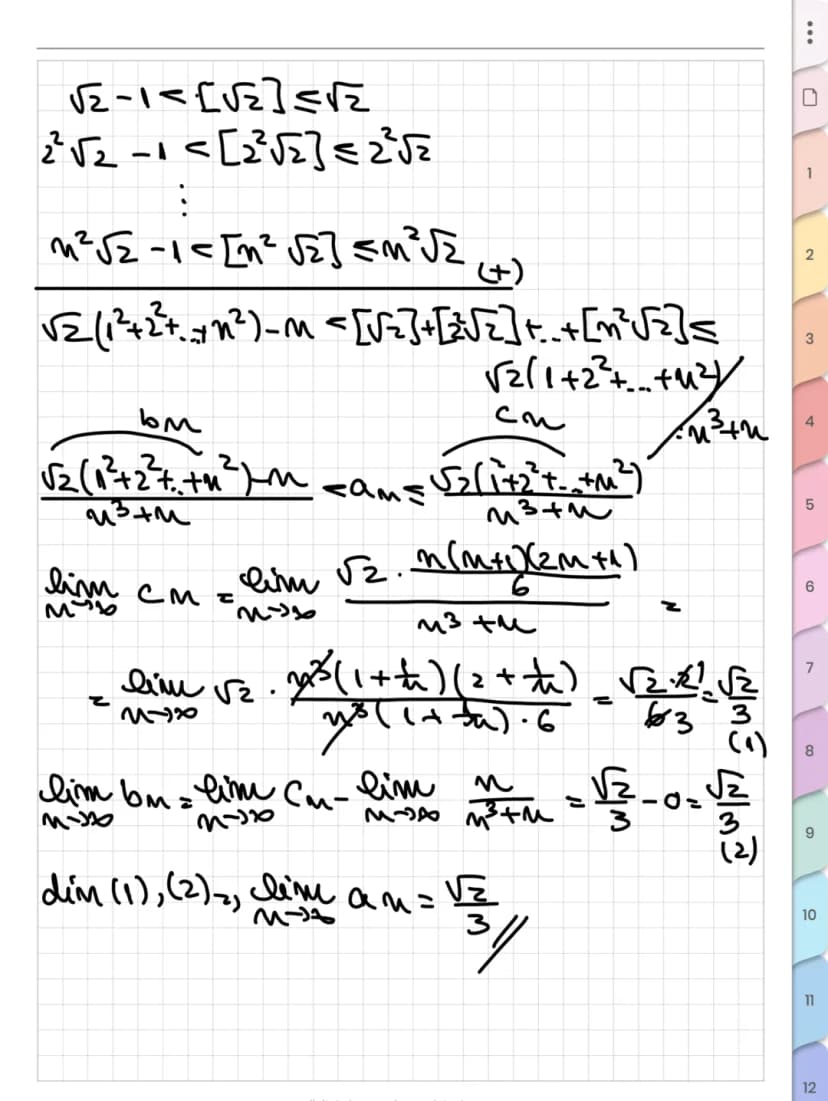 √2 - 1 < [√2] ≤ √2
2²√2 - 1 < [2²√2] ≤ 2²√2
⋮
n²√2 - 1 < [n²√2] ≤ n²√2 (+)
√2(1²+2²+..+n²) - n < [√2]+[2²√2]+..+[n²√2] ≤
√2(1+2²+...+n²) / :n³+n
bn cn
(√2(1²+2²+..+n²) - n)/(n³+n) < an ≤ (√2(1²+2²+..+n²))/(n³+n)
lim n→∞ cn = lim n→∞ (√2 · n(n+1)(2n+1)/6)/(n³+n) =
= lim n→∞ √2 · (n³(1+1/n)(2+1/n))/(n³(1+1/n)·6) = (√2·2)/(6) 1 3 = √2/3 (1)
lim n→∞ bn = lim n→∞ cn - lim n→∞ n/(n³+n) = √2/3 - 0 = √2/3 (2)
din (1),(2) => lim n→∞ an = √2/3 //
1
2
3
4
5
6
7
8
9
10
11
12